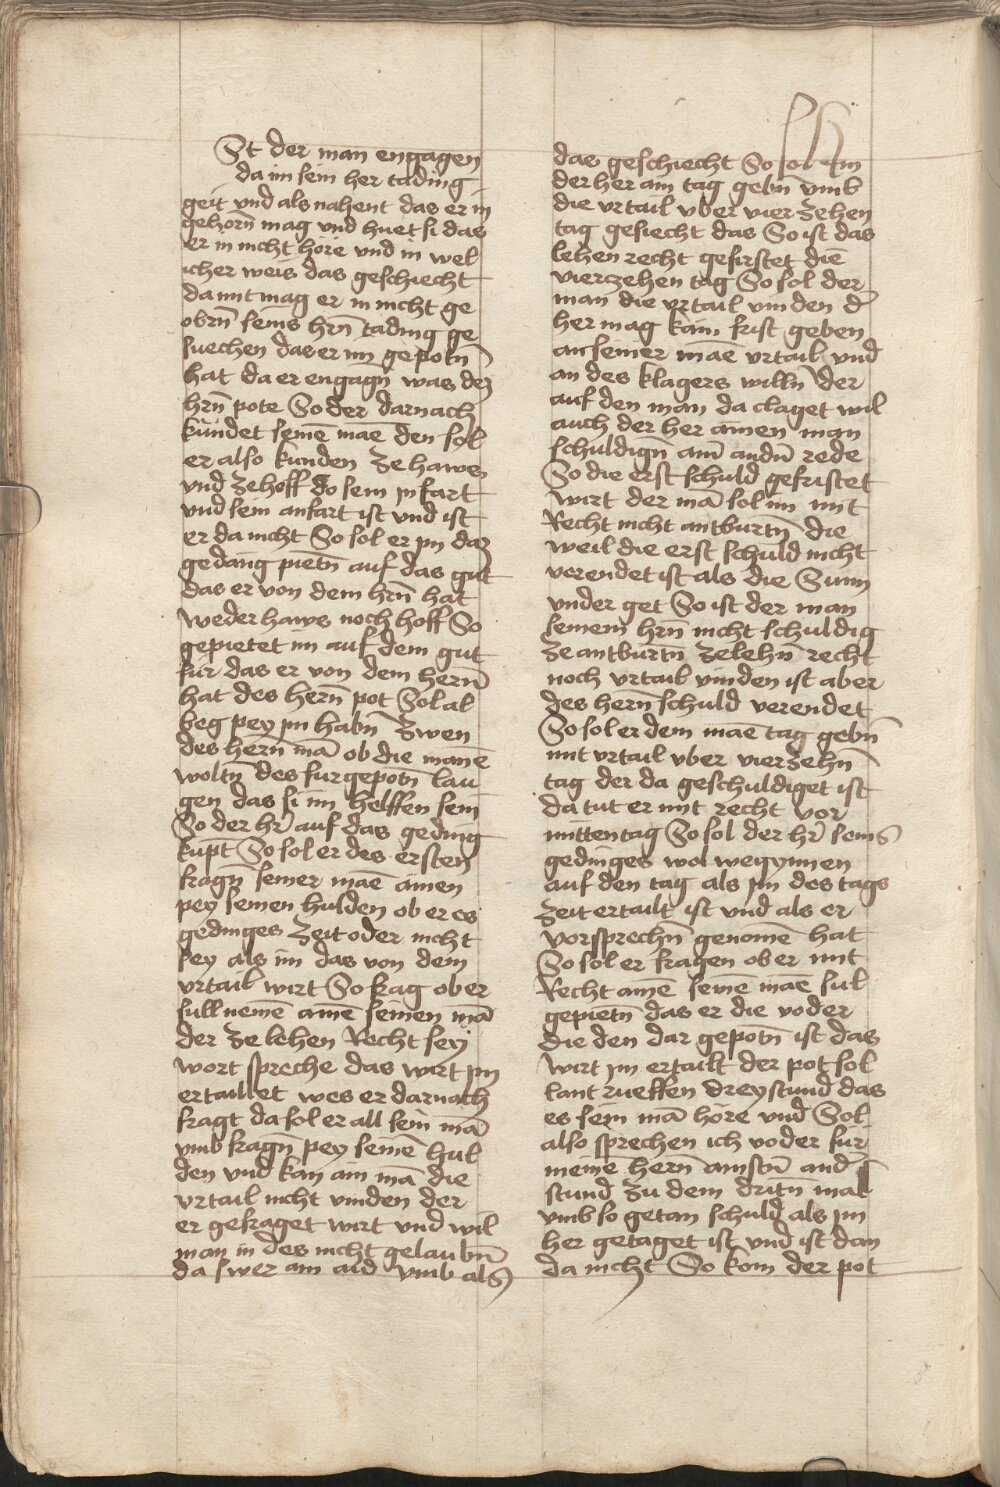 St der man engagen
da im sein her tading
geit vnd als nahent das er in
gehorñ mag vnd huet si das
er in nicht hore vnd in wel
icher weis das geschiecht
da mit mag er in nicht ge
obrñ seins hrñ tading ge
suechen das er im gepotñ
hat da er engagñ was dez
hrñ pote So der darnach
kundet seinē māe den sol
er also kunden ze hawes
vnd ze hoff do sein in fart
vnd sein anfart ist vnd ist
er da nicht So sol er yn daz
gedāng pietñ auf das gut
das er von dem hrñ hat
weder hawe noch hoff So
gepietet im auf dem gut
für das er von dem hernñ
hat des hernñ pot Sol al
beg pey ym habñ zwen
des hernñ mā ob die manē
woltñ des furgepotñ lau
gen das si im helffen sein
So der hr̄ auf das geding
kupt So sol er des ersten
fragñ seiner māe ainen
pey seinen hulden ob er es
gedinges zeit oder nicht
sey als im das von dem
vrtail wirt So frag ob er
sull nemē ainē seinen mā
der ze lehen Recht sey
wort spreche das wirt ym
ertaillet wes er darnach
fragt da sol er all sein mā
vmb fragñ pey seinē hul
den vnd kan ain mā die
vrtail nicht vinden der
er gefraget wirt vnd wil
man in des nicht gelaubñ
da swer ain aid vmb als
das geschiecht So sol im
der her ain tag gebñ vmb
die vrtail vber vierzehen
tag gesiecht das So ist das
lehen recht gefristet die
vierzehen tag So sol der
man die vrtail vinden d'
her mag kain frist geben
an seiner māe vrtail vnd
an des klagers willñ der
auf den man da claget wil
auch der her ainen man
schuldigñ aīn andñ rede
So die erst schuld gefristet
wirt der mā sol im mit
Recht nicht antburtñ die
weil die erst schuld nicht
verendet ist als die Sunn
vnder get So ist der man
seinem hrñ nicht schuldig
ze antburtñ zelehñ recht
noch vrtail vinden ist aber
des hernñ schuld verendet
So sol er dem māe tag gebñ
mit vrtail vber vierzehñ
tag der da geschuldiget ist
da tut er mit recht vor
mittentag So sol der hr̄ seins
gedinges wol wegynnen
auf den tag als ym des tags
zeit ertailt ist vnd als er
vorsprechñ genomē hat
So sol er fragen ob er mit
Recht ainē seinē māe sul
gepietñ das er die voder
die den dar gepotñ ist das
wirt ym ertailt der pot sol
laut rueffen dreystund das
es sein mā höre vnd Sol
also sprechen ich voder für
meinē hernñ
stund zu dem dritñ mal
vmb so getan schuld als ym
her getaget ist vnd ist dan
da nicht So kom der pot